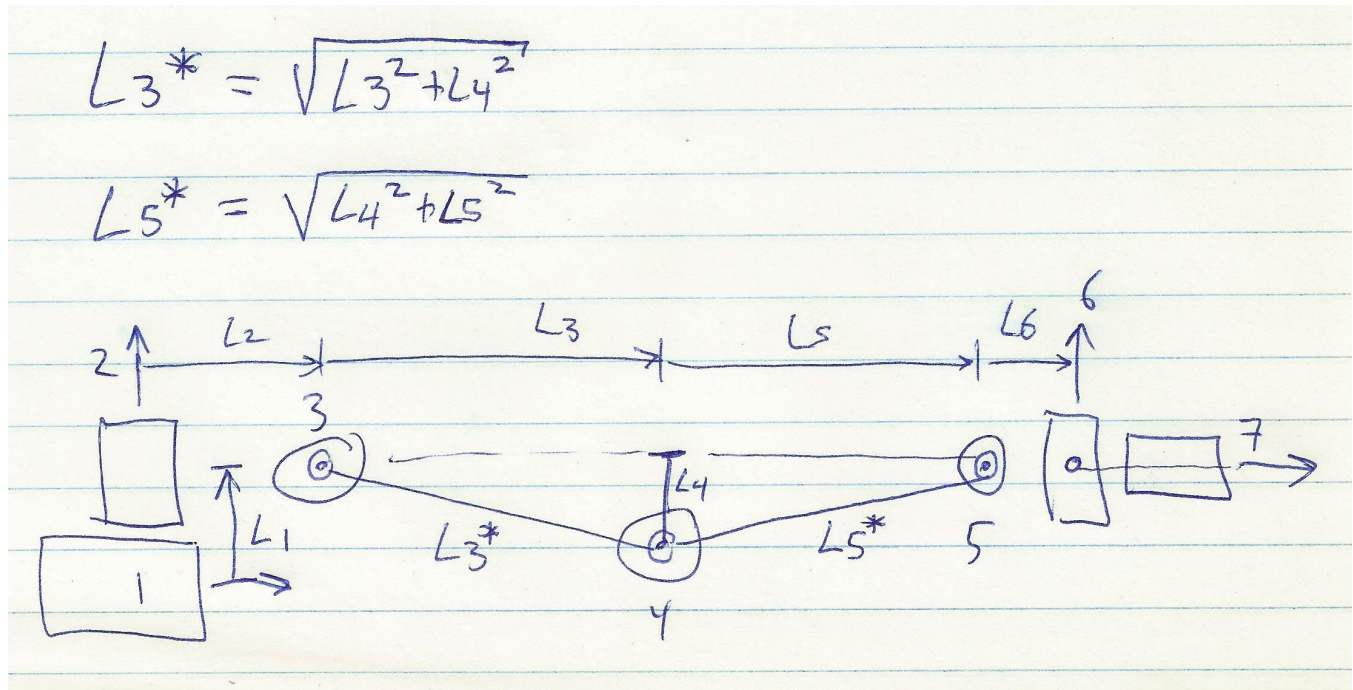 L3* = √L3²+L4²
L5* = √L4²+L5²
6
2 L2 L3 L5 L6
3 7
L4
L1 L3* L5* 5
1
4